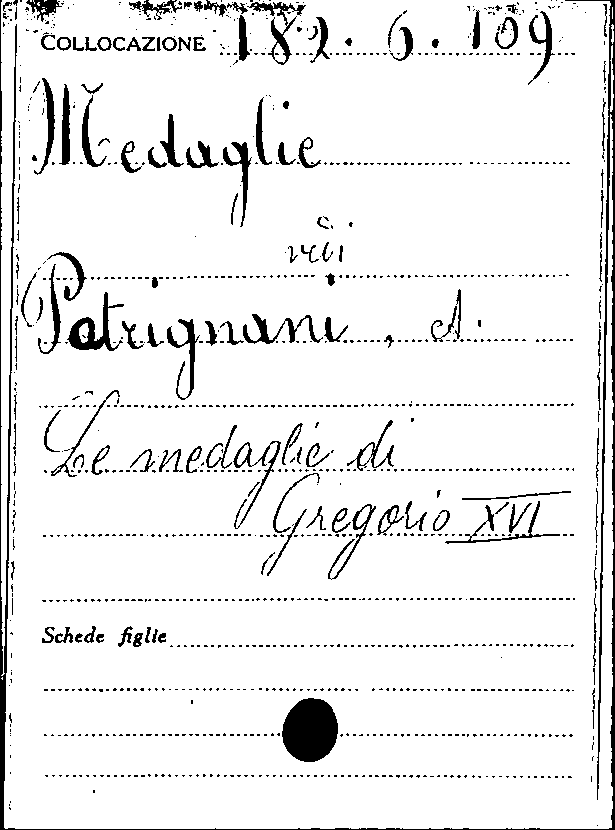 COLLOCAZIONE 182.6.109
Medaglie
vedi
Patrignani, A.
Le medaglie di
Gregorio XVI
Schede figlie